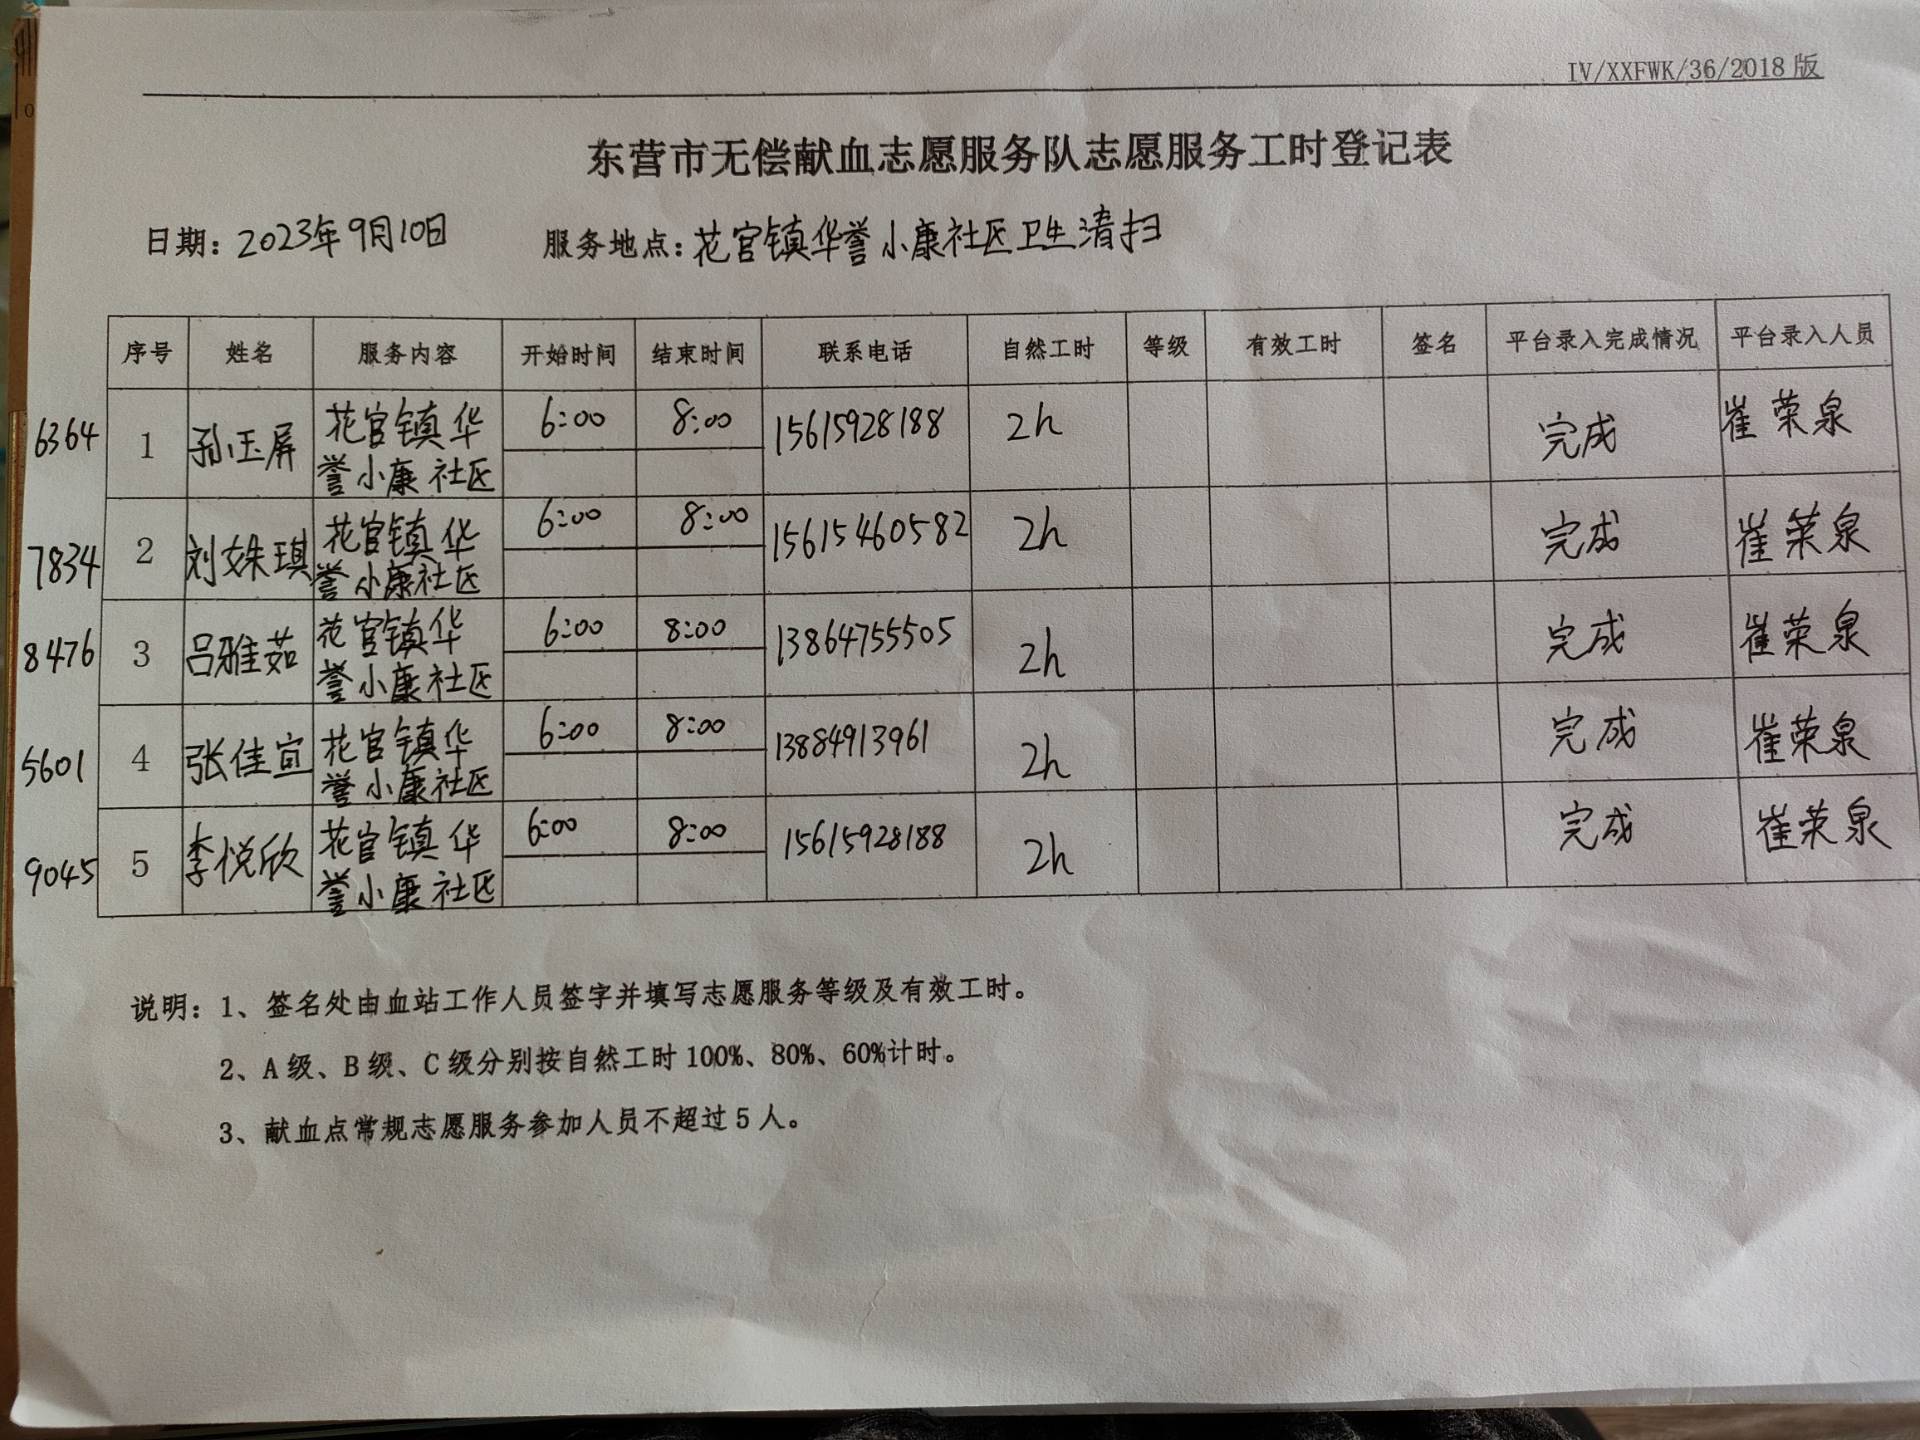 IV/XXFWK/36/2018版
东营市无偿献血志愿服务队志愿服务工时登记表
日期：2023年9月10日 服务地点：花官镇华誉小康社区卫生清扫
序号 姓名 服务内容 开始时间 结束时间 联系电话 自然工时 等级 有效工时 签名 平台录入完成情况 平台录入人员
6364 1 孙玉屏 花官镇华 6:00 8:00 15615928188 2h 完成 崔荣泉
誉小康社区
7834 2 刘姝琪 花官镇华 6:00 8:00 15615460582 2h 完成 崔荣泉
誉小康社区
8476 3 吕雅茹 花官镇华 6:00 8:00 13864755505 2h 完成 崔荣泉
誉小康社区
5601 4 张佳宜 花官镇华 6:00 8:00 13884913961 2h 完成 崔荣泉
誉小康社区
9045 5 李悦欣 花官镇华 6:00 8:00 15615928188 2h 完成 崔荣泉
誉小康社区
说明：1、签名处由血站工作人员签字并填写志愿服务等级及有效工时。
2、A级、B级、C级分别按自然工时100%、80%、60%计时。
3、献血点常规志愿服务参加人员不超过5人。